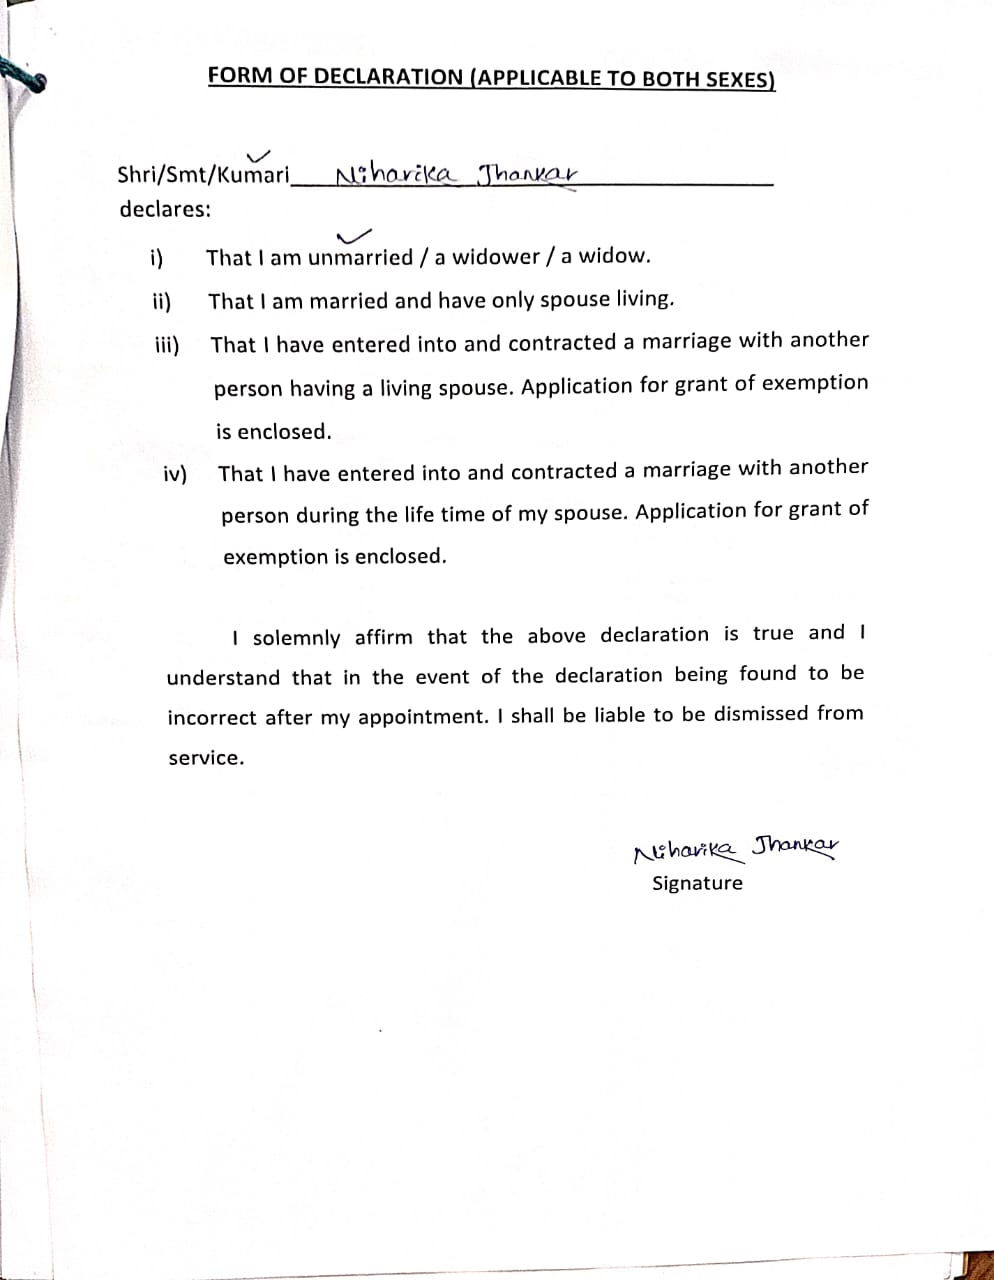 FORM OF DECLARATION (APPLICABLE TO BOTH SEXES)
Shri/Smt/Kumari Niharika Jhankar
declares:
i) That I am unmarried / a widower / a widow.
ii) That I am married and have only spouse living.
iii) That I have entered into and contracted a marriage with another
person having a living spouse. Application for grant of exemption
is enclosed.
iv) That I have entered into and contracted a marriage with another
person during the life time of my spouse. Application for grant of
exemption is enclosed.
I solemnly affirm that the above declaration is true and I
understand that in the event of the declaration being found to be
incorrect after my appointment. I shall be liable to be dismissed from
service.
Niharika Jhankar
Signature